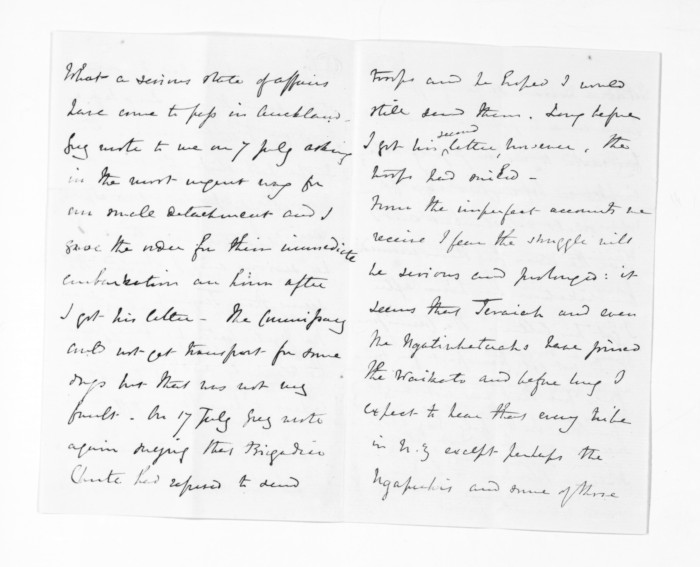 What a serious state of affairs
have come to pass in Auckland -
Grey wrote to me on 7 July asking
in the most urgent way for
our small detachment and I
gave the order for their immediate
embarkation an hour after
I got his letter - The Commissary
could not get transport for some
days but that was not my
fault - On 17 July Grey wrote
again saying that Brigadier
Chute had refused to send
troops and he hoped I would
still send them. Long before
I got his second letter, however, the
troops had sailed -
From the imperfect accounts we
receive I fear the struggle will
be serious and prolonged: it
seems that Teraiah and even
the Ngatiwhetuahs have joined
the Waikato and before long I
expect to hear that every tribe
in N.Z except perhaps the
Ngapuhis and some of those